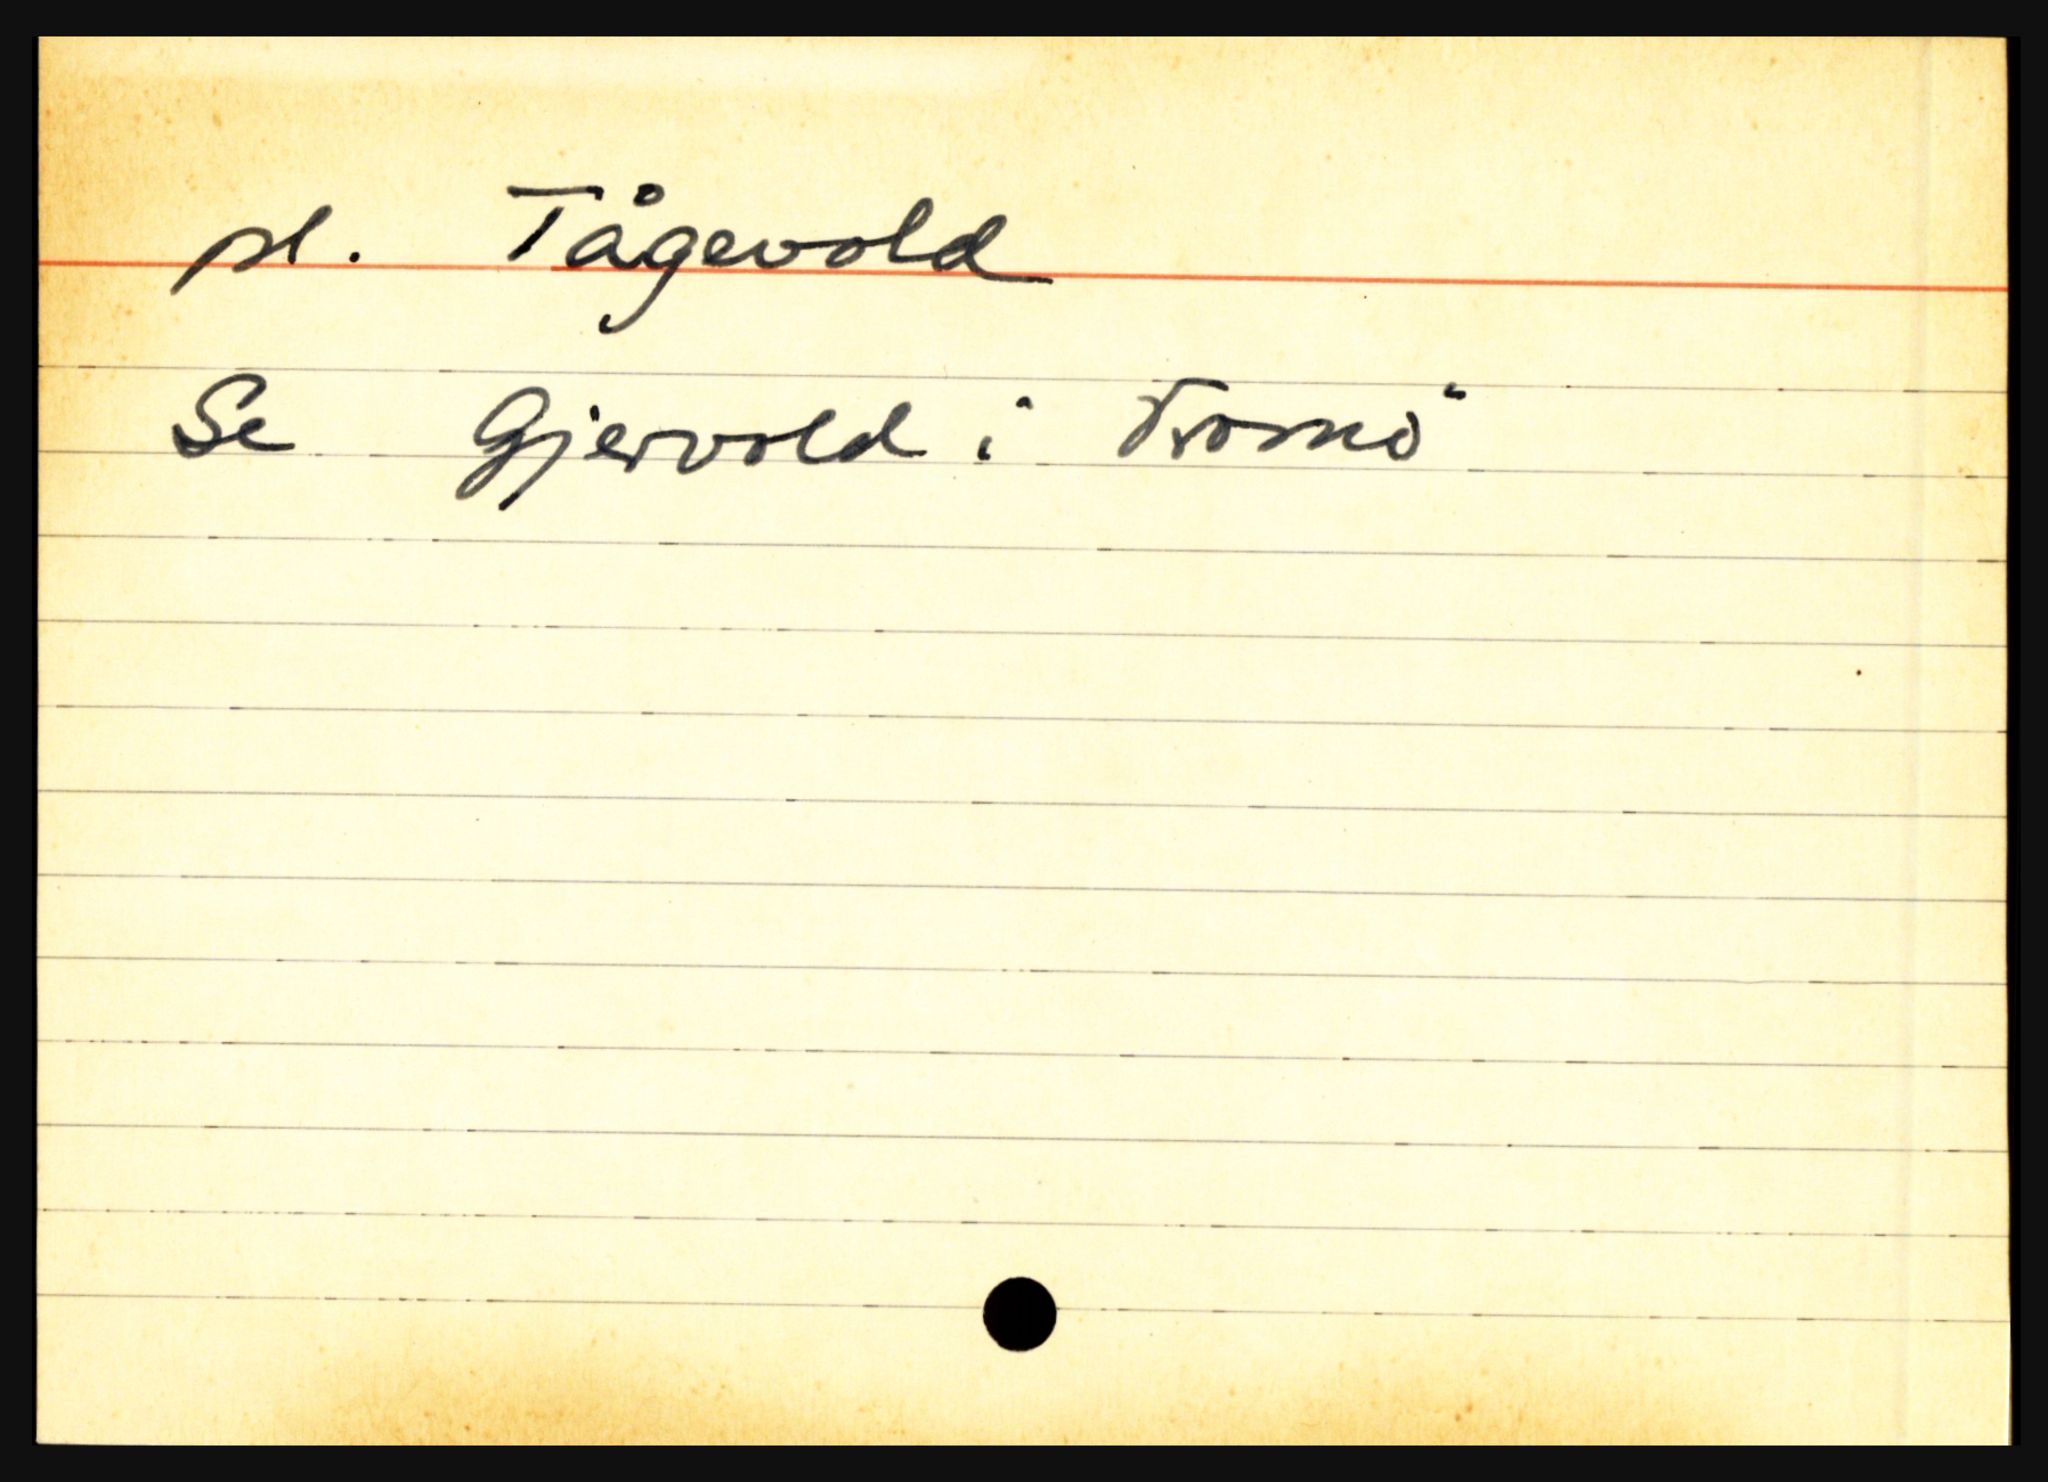 pl. Tågevold
Se Gjervold i Tromö